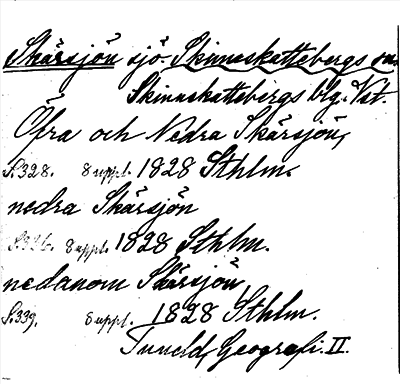 Skärsjön sjö. Skinneskattebergs sn.
Skinnskattebergs blg. Vst.
Öfra och Nedra Skärsjön,
S.328. 8 uppl. 1828 Sthlm.
nedra Skärsjön
S.336. 8 uppl. 1828 Sthlm.
nedanom Skärsjön,
S.339. 8 uppl. 1828 Sthlm.
Tuneld, Geografi. II.